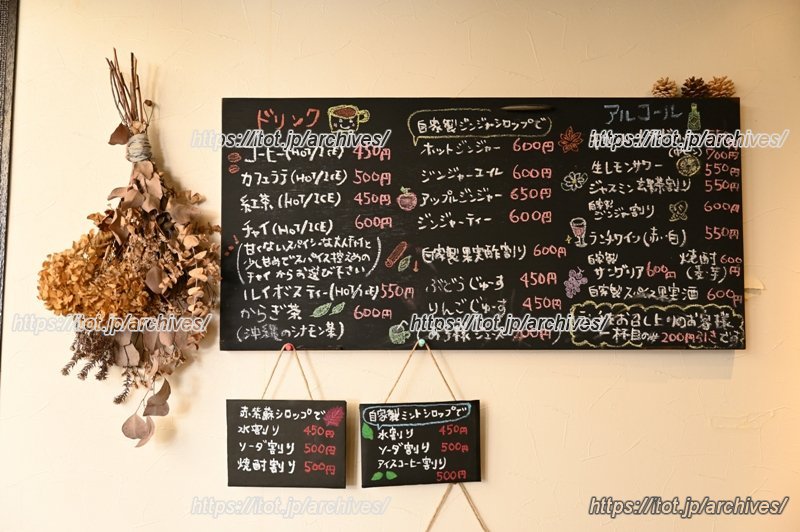 ドリンク
コーヒー(HOT/ICE) 450円
カフェラテ(HOT/ICE) 500円
紅茶(HOT/ICE) 450円
チャイ(HOT/ICE) 600円
(甘くないスパイシーな大人向けと
少し甘めでスパイス控えめの
チャイからお選び下さい)
ルイボスティー(HOT/ICE) 550円
からぎ茶 600円
(沖縄のシナモン葉)
自家製ジンジャーシロップで
ホットジンジャー 600円
ジンジャーエール 600円
アップルジンジャー 650円
ジンジャーティー 600円
自家製果実酢割り 600円
ぶどうじゅーす 450円
りんごじゅーす 450円
アルコール
700円
生レモンサワー 550円
ジャスミン玄米茶割り 550円
自家製
ジンジャー割り 600円
ランチワイン(赤・白) 550円
自家製
サングリア 600円
焼酎 600円
(麦・芋)
自家製スパイス果実酒 600円
ランチお召し上りのお客様
一杯目のみ200円引きです
赤紫蘇シロップで
水割り 450円
ソーダ割り 500円
焼酎割り 500円
自家製ミントシロップで
水割り 450円
ソーダ割り 500円
アイスコーヒー割り
500円
https://itot.jp/archives/
https://itot.jp/archives/
https://itot.jp/archives/
https://itot.jp/archives/
https://itot.jp/archives/
https://itot.jp/archives/
https://itot.jp/archives/
https://itot.jp/archives/